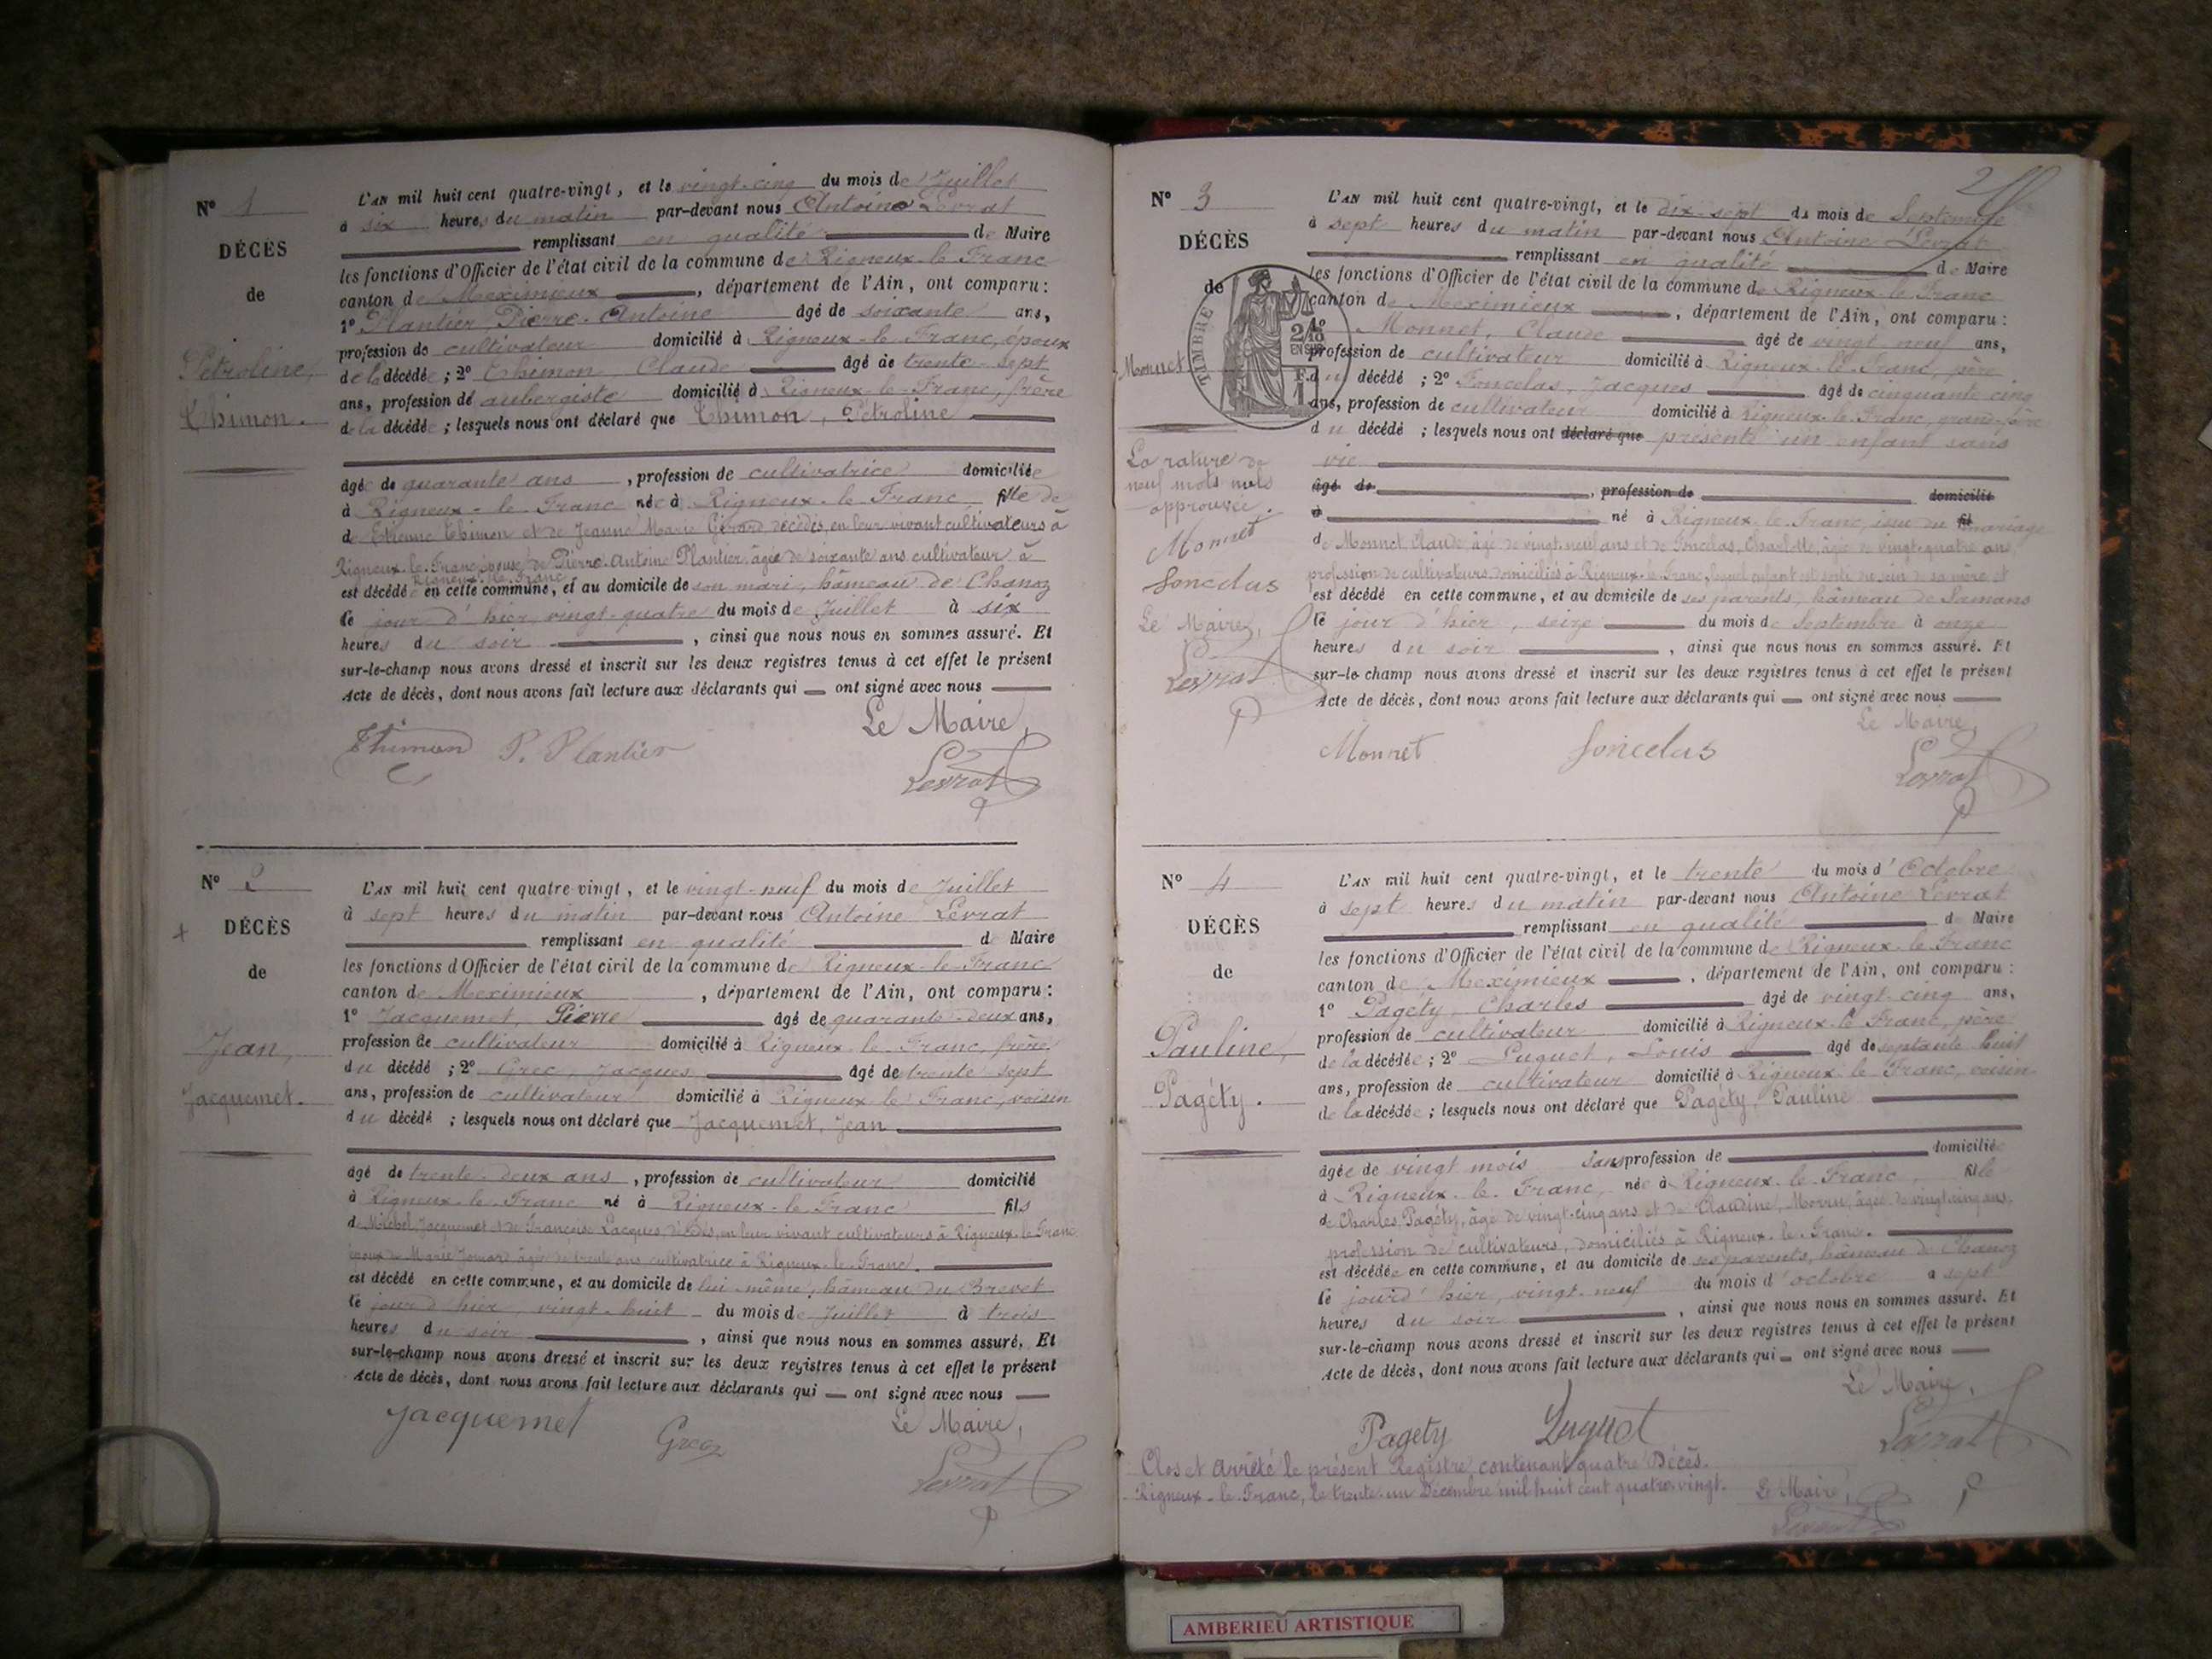 N° 1
DÉCÈS
de
Pétroline,
Thimon.
L'AN mil huit cent quatre-vingt, et le vingt-cinq du mois de Juillet
à six heures du matin par-devant nous Antoine Levrat
remplissant en qualité de Maire
les fonctions d'Officier de l'état civil de la commune de Rigneux-le-Franc
canton de Meximieux, département de l'Ain, ont comparu :
1° Plantier Pierre-Antoine âgé de soixante ans,
profession de cultivateur domicilié à Rigneux-le-Franc, époux
de la décédée ; 2° Thimon Claude âgé de trente-sept
ans, profession de aubergiste domicilié à Rigneux-le-Franc, frère
de la décédée ; lesquels nous ont déclaré que Thimon, Pétroline
âgée de quarante ans, profession de cultivatrice domiciliée
à Rigneux-le-Franc née à Rigneux-le-Franc fille de
de Etienne Thimon et de Jeanne Marie Gérard, décédés, en leur vivant cultivateurs à
Rigneux-le-Franc, épouse de Pierre Antoine Plantier, âgé de soixante ans cultivateur à
Rigneux-le-Franc
est décédée en cette commune, et au domicile de son mari, hâmeau de Chanoz
le jour d'hier, vingt-quatre du mois de Juillet à six
heures du soir, ainsi que nous nous en sommes assuré. Et
sur-le-champ nous avons dressé et inscrit sur les deux registres tenus à cet effet le présent
Acte de décès, dont nous avons fait lecture aux déclarants qui ont signé avec nous
Le Maire,
Thimon P. Plantier
Levrat
N° 2
DÉCÈS
de
Jean,
Jacquemet.
L'AN mil huit cent quatre-vingt, et le vingt-neuf du mois de Juillet
à sept heures du matin par-devant nous Antoine Levrat
remplissant en qualité de Maire
les fonctions d'Officier de l'état civil de la commune de Rigneux-le-Franc
canton de Meximieux, département de l'Ain, ont comparu :
1° Jacquemet, Pierre âgé de quarante-deux ans,
profession de cultivateur domicilié à Rigneux-le-Franc, frère
du décédé ; 2° Grec, Jacques âgé de trente-sept
ans, profession de cultivateur domicilié à Rigneux-le-Franc, voisin
du décédé ; lesquels nous ont déclaré que Jacquemet, Jean
âgé de trente-deux ans, profession de cultivateur domicilié
à Rigneux-le-Franc né à Rigneux-le-Franc fils
de Michel Jacquemet et de Françoise Lacques, décédés, en leur vivant cultivateurs à Rigneux-le-Franc
époux de Marie Jomard âgée de trente ans cultivatrice à Rigneux-le-Franc.
est décédé en cette commune, et au domicile de lui-même, hâmeau du Brevet
le jour d'hier, vingt-huit du mois de Juillet à trois
heures du soir, ainsi que nous nous en sommes assuré. Et
sur-le-champ nous avons dressé et inscrit sur les deux registres tenus à cet effet le présent
Acte de décès, dont nous avons fait lecture aux déclarants qui ont signé avec nous
Jacquemet Grec Le Maire,
Levrat
N° 3
DÉCÈS
de
Monnet
TIMBRE
2/10
EN SUS
La rature de
neuf mots nuls
approuvée.
Monnet
Foncelas
Le Maire,
Levrat
L'AN mil huit cent quatre-vingt, et le dix-sept du mois de Septembre
à sept heures du matin par-devant nous Antoine Levrat
remplissant en qualité de Maire
les fonctions d'Officier de l'état civil de la commune de Rigneux-le-Franc
canton de Meximieux, département de l'Ain, ont comparu :
1° Monnet, Claude âgé de vingt-neuf ans,
profession de cultivateur domicilié à Rigneux-le-Franc, père
du décédé ; 2° Foncelas, Jacques âgé de cinquante cinq
ans, profession de cultivateur domicilié à Rigneux-le-Franc, grand-père
du décédé ; lesquels nous ont déclaré que présenté un enfant sans
vie
âgé de, profession de domicilié
à né à Rigneux-le-Franc, issu du fil mariage
de Monnet Claude, âgé de vingt-neuf ans et de Foncelas, Charlotte, âgée de vingt-quatre ans
profession de cultivateurs domiciliés à Rigneux-le-Franc, lequel enfant est sorti du sein de sa mère et
est décédé en cette commune, et au domicile de ses parents, hâmeau de Samans
le jour d'hier, seize du mois de Septembre à onze
heures du soir, ainsi que nous nous en sommes assuré. Et
sur-le-champ nous avons dressé et inscrit sur les deux registres tenus à cet effet le présent
Acte de décès, dont nous avons fait lecture aux déclarants qui ont signé avec nous
Le Maire,
Monnet Foncelas Levrat
N° 4
DÉCÈS
de
Pauline,
Pagéty.
L'AN mil huit cent quatre-vingt, et le trente du mois d'Octobre
à sept heures du matin par-devant nous Antoine Levrat
remplissant en qualité de Maire
les fonctions d'Officier de l'état civil de la commune de Rigneux-le-Franc
canton de Meximieux, département de l'Ain, ont comparu :
1° Pagéty, Charles âgé de vingt-cinq ans,
profession de cultivateur domicilié à Rigneux-le-Franc, père
de la décédée ; 2° Luguet, Louis âgé de septante huit
ans, profession de cultivateur domicilié à Rigneux-le-Franc, voisin
de la décédée ; lesquels nous ont déclaré que Pagéty, Pauline
âgée de vingt mois sans profession de domiciliée
à Rigneux-le-Franc, née à Rigneux-le-Franc, fille
de Charles Pagéty, âgé de vingt-cinq ans et de Claudine, âgée de vingt cinq ans,
profession de cultivateurs, domiciliés à Rigneux-le-Franc.
est décédée en cette commune, et au domicile de ses parents, hâmeau de Chanoz
le jour d'hier, vingt-neuf du mois d'octobre à sept
heures du soir, ainsi que nous nous en sommes assuré. Et
sur-le-champ nous avons dressé et inscrit sur les deux registres tenus à cet effet le présent
Acte de décès, dont nous avons fait lecture aux déclarants qui ont signé avec nous
Le Maire,
Pagéty Luguet Levrat
Clos et arrêté le présent Registre contenant quatre Décès.
Rigneux-le-Franc, le trente-un Décembre mil huit cent quatre-vingt. Le Maire,
Levrat
AMBERIEU ARTISTIQUE